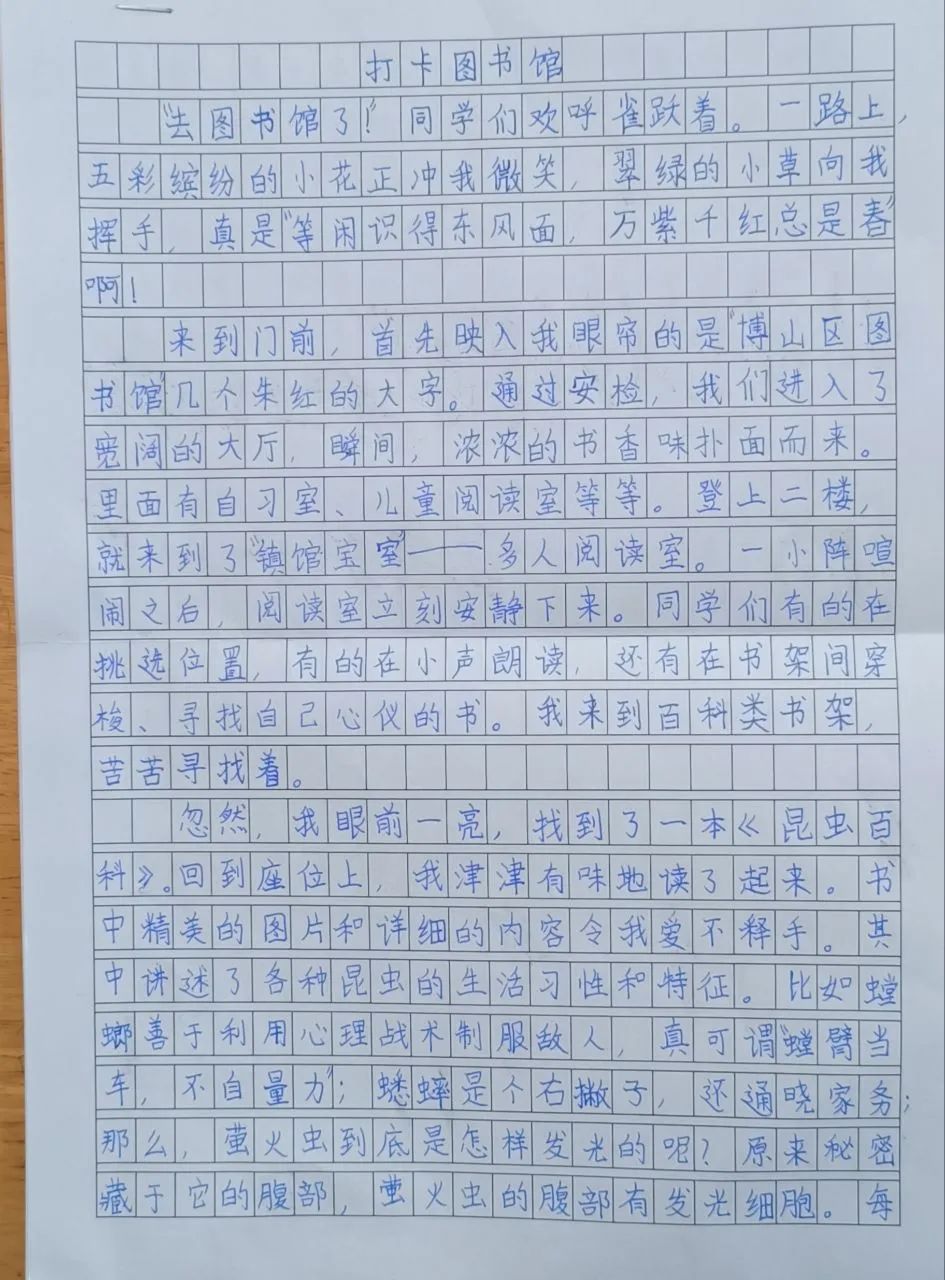 打卡图书馆
“去图书馆了！”同学们欢呼雀跃着。一路上，
五彩缤纷的小花正冲我微笑，翠绿的小草向我
挥手，真是“等闲识得东风面，万紫千红总是春”
啊！
来到门前，首先映入我眼帘的是“博山区图
书馆”几个朱红的大字。通过安检，我们进入了
宽阔的大厅，瞬间，浓浓的书香味扑面而来。
里面有自习室、儿童阅读室等等。登上二楼，
就来到了“镇馆宝室”——多人阅读室。一小阵喧
闹之后，阅读室立刻安静下来。同学们有的在
挑选位置，有的在小声朗读，还有在书架间穿
梭、寻找自己心仪的书。我来到百科类书架，
苦苦寻找着。
忽然，我眼前一亮，找到了一本《昆虫百
科》。回到座位上，我津津有味地读了起来。书
中精美的图片和详细的内容令我爱不释手。其
中讲述了各种昆虫的生活习性和特征。比如螳
螂善于利用心理战术制服敌人，真可谓“螳臂当
车，不自量力”；蟋蟀是个右撇子，还通晓家务；
那么，萤火虫到底是怎样发光的呢？原来秘密
藏于它的腹部，萤火虫的腹部有发光细胞。每